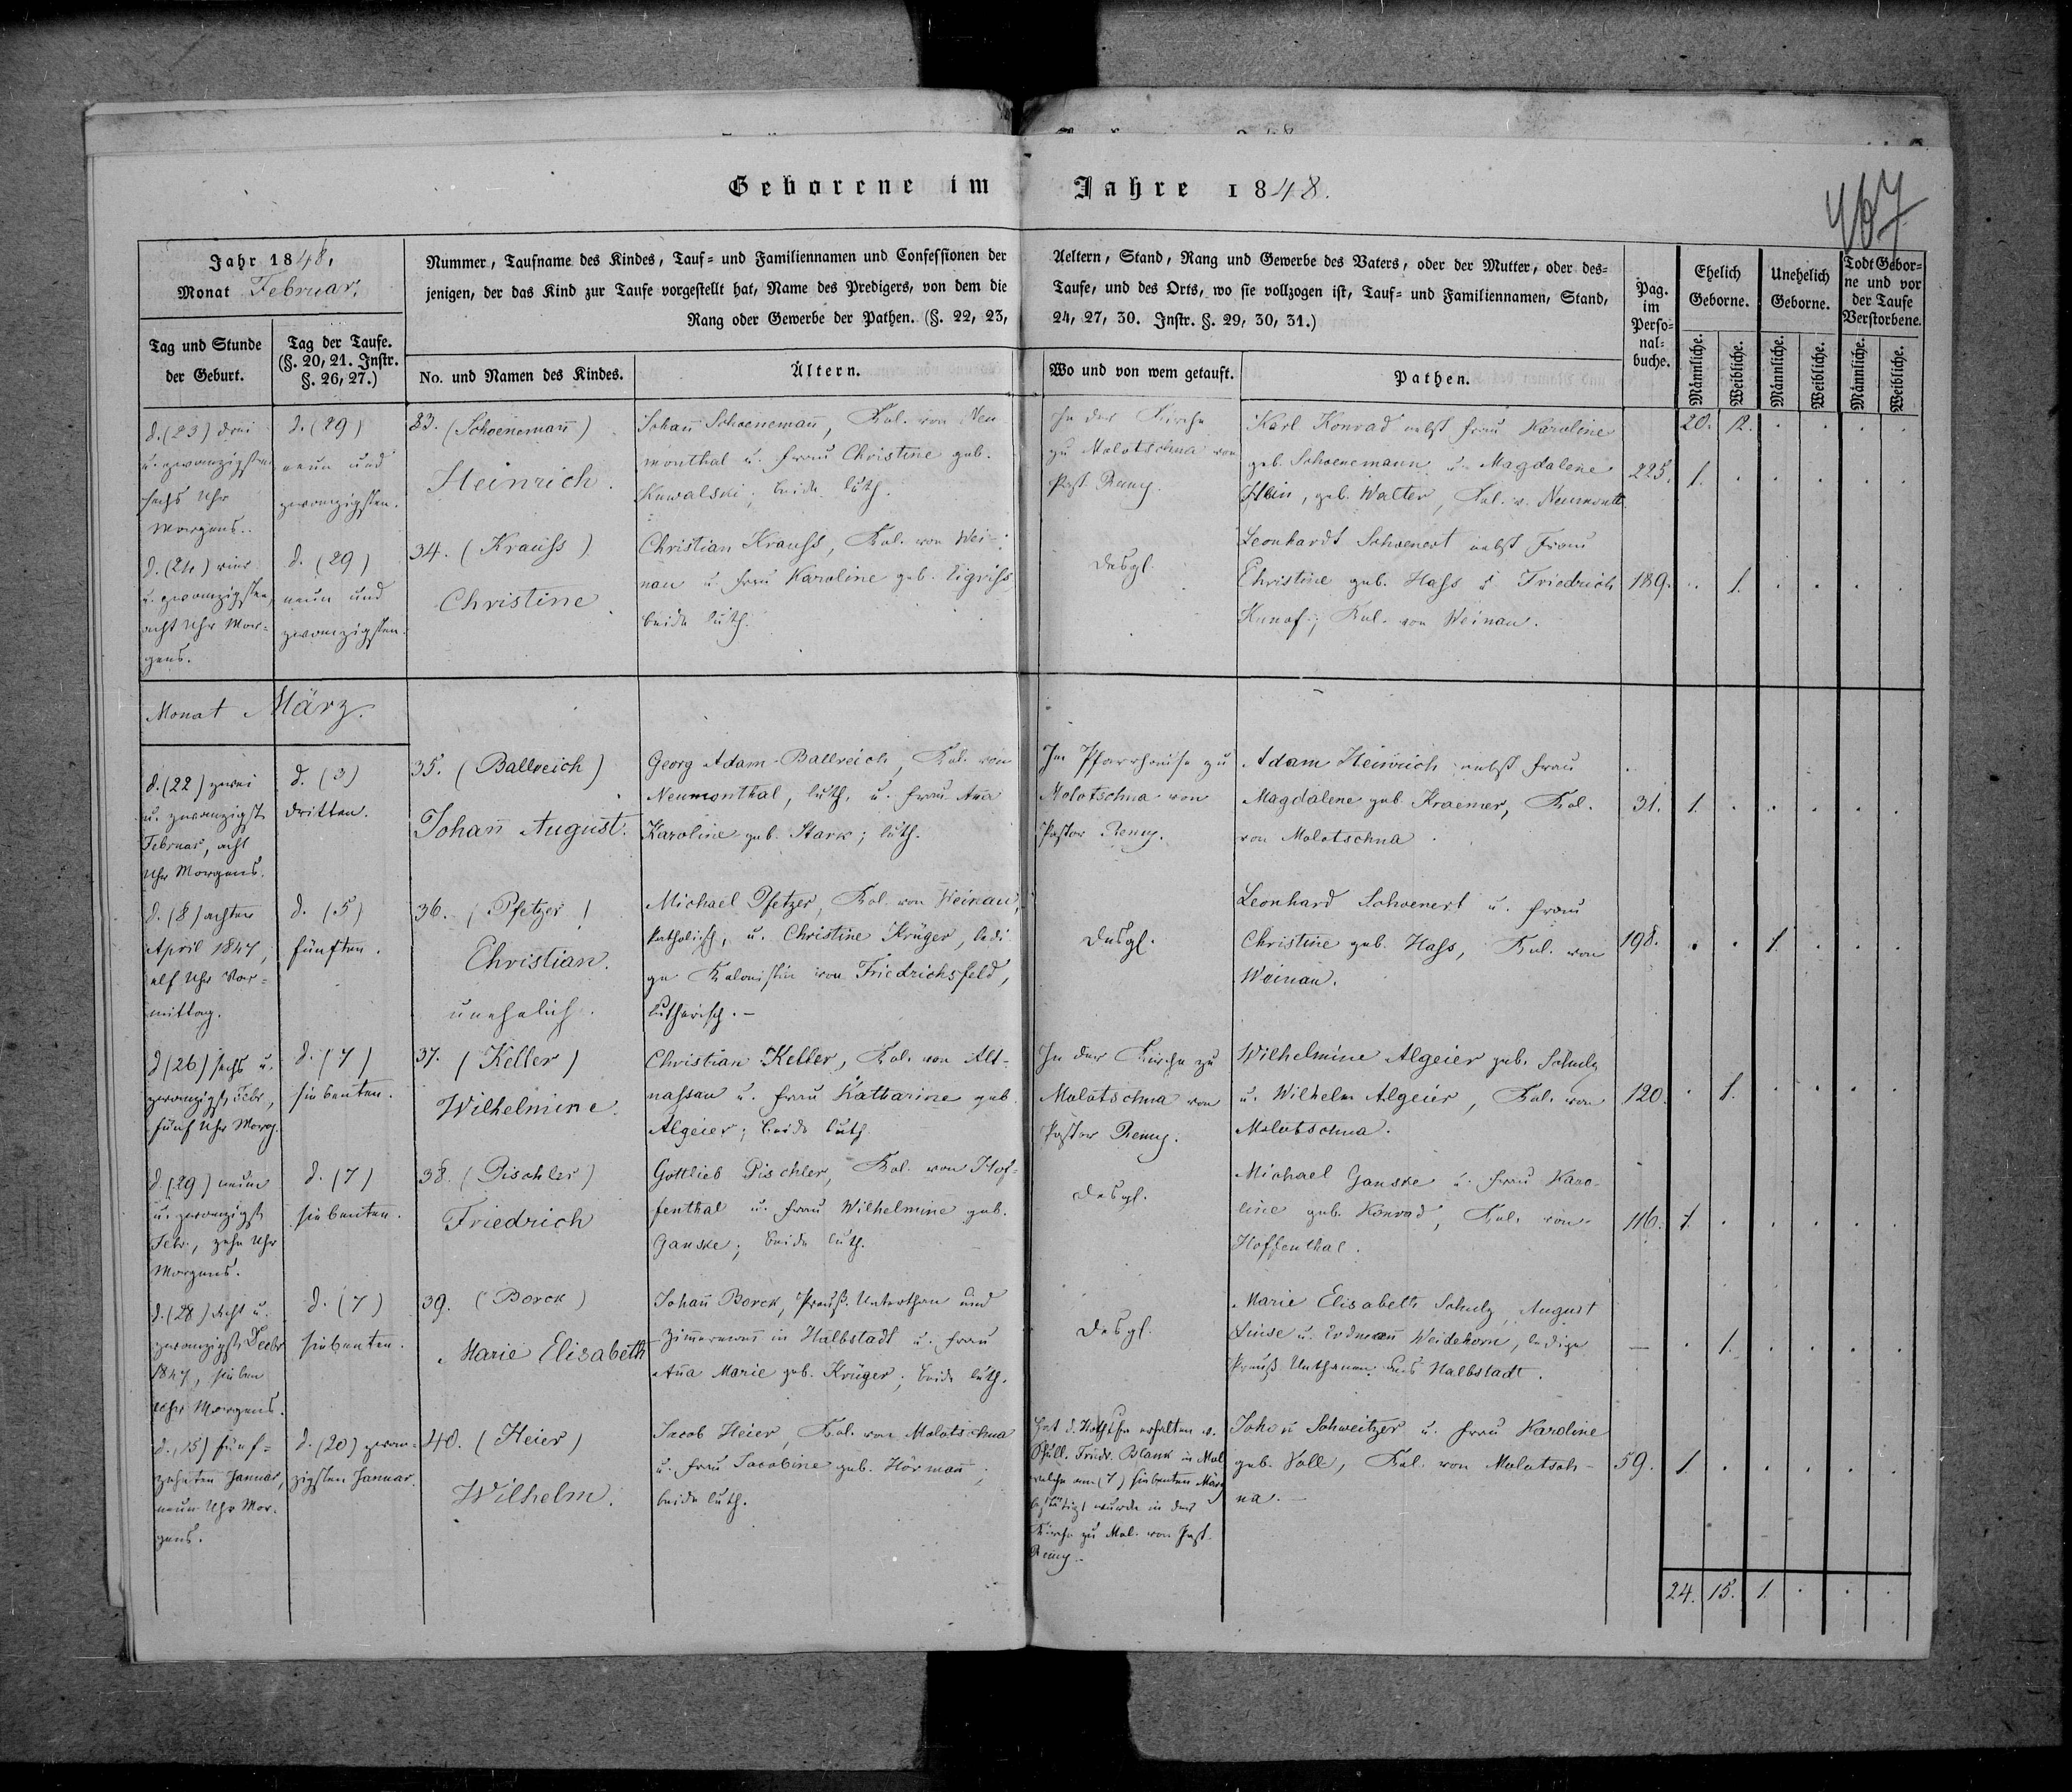 Geborene im Jahre 1848.
467
Jahr 1848,
Monat Februar.
Tag und Stunde
der Geburt.
Tag der Taufe.
(§. 20, 21. Instr.
§. 26, 27.)
Nummer, Taufname des Kindes, Tauf= und Familiennamen und Confessionen der
jenigen, der das Kind zur Taufe vorgestellt hat, Name des Predigers, von dem die
Rang oder Gewerbe der Pathen. (§. 22, 23,
No. und Namen des Kindes.
Ältern.
Aeltern, Stand, Rang und Gewerbe des Vaters, oder der Mutter, oder des=
Taufe, und des Orts, wo sie vollzogen ist, Tauf= und Familiennamen, Stand,
24, 27, 30. Instr. §. 29, 30, 31.)
Wo und von wem getauft.
Pathen.
Pag.
im
Perso=
nal=
buche.
Ehelich
Geborne.
Unehelich
Geborne.
Todt Gebor=
ne und vor
der Taufe
Verstorbene.
Männliche.
Weibliche.
Männliche.
Weibliche.
Männliche.
Weibliche.
20. 12. . . . .
d. (23) drei
u. zwanzigsten
sechs Uhr
Morgens.
d. (29)
neun und
zwanzigsten.
33. (Schoenemañ)
Heinrich.
Johañ Schoenemañ, Kol. von Neu
monthal u. Frau Christine geb.
Kuwalski; beide luth.
In der Kirche
zu Molotschna von
Past. Remy.
Karl Konrad nebst Frau Karoline
geb. Schoenemann u. Magdalene
geb. Walter, Kol. v. Neumonth.
225. 1. . . . . .
d. (24) vier
u. zwanzigsten,
acht Uhr Mor=
gens.
d. (29)
neun und
zwanzigsten.
34. (Krauss)
Christine.
Christian Krauss, Kol. von Wei=
nau u. Frau Karoline geb.
beide luth.
desgl.
Leonhardt Schoenert nebst Frau
Christine geb. Hass u. Friedrich
Kol. von Weinau.
189. . 1. . . . .
Monat März.
d. (22) zwei
u. zwanzigst.
Februar, acht
Uhr Morgens.
d. (3)
dritten.
35. (Ballreich)
Johañ August.
Georg Adam Ballreich, Kol. von
Neumonthal, luth. u. Frau Aña
Karoline geb. Stark; luth.
Im Pfarrhause zu
Molotschna von
Pastor Remy.
Adam Heinrich nebst Frau
Magdalene geb. Kraemer, Kol.
von Molotschna.
31. 1. . . . . .
d. (8) achten
April 1847,
elf Uhr Vor=
mittag.
d. (5)
fünften.
36. (Pfetzer)
Christian.
unehelich.
Michael Pfetzer, Kol. von Weinau,
katholisch, u. Christine Krüger, ledi
ge Kolonistin von Friedrichsfeld,
lutherisch. –
desgl.
Leonhard Schoenert u. Frau
Christine geb. Hass, Kol. von
Weinau.
198. . . 1. . . .
d (26) sechs u.
zwanzigst. Febr.,
fünf Uhr Morg.
d. (7)
siebenten.
37. (Keller)
Wilhelmine.
Christian Keller, Kol. von Alt=
nassau u. Frau Katharine geb.
Algeier; beide luth.
In der Kirche zu
Molotschna von
Pastor Remy.
Wilhelmine Algeier geb. Schulz
u. Wilhelm Algeier, Kol. von
Molotschna.
120. . 1. . . . .
d. (29) neun
u. zwanzigst.
Febr., zehn Uhr
Morgens.
d. (7)
siebenten.
38. (Pischler)
Friedrich
Gottlieb Pischler, Kol. von Hof=
fenthal u. Frau Wilhelmine geb.
Ganske; beide luth.
desgl.
Michael Ganske u. Frau Karo=
line geb. Konrad, Kol. von
Hoffenthal.
116. 1. . . . . .
d. (28) Acht u.
zwanzigst. Decbr
1847, sieben
Uhr Morgens.
d. (7)
siebenten.
39. (Borck)
Marie Elisabeth
Johañ Borck, Preuß. Unterthan und
Zimermañ in Halbstadt u. Frau
Aña Marie geb. Krüger; beide luth.
desgl.
Marie Elisabeth Schulz, August
u. Erdmañ Weidehorn, ledige
Preuß. Unthanen aus Halbstadt.
– . 1. . . . .
d. (15) fünf=
zehnten Januar,
neun Uhr Mor=
gens.
d. (20) zwan=
zigsten Januar.
40. (Heier)
Wilhelm.
Jacob Heier, Kol. von Molotschna
u. Frau Jacobine geb. Hörmañ;
beide luth.
Hat d. Nothtfe erhalten v.
Schull. Friedr. Blank in Mol
welche am (7) siebenten März
bestätigt wurde in der
Kirche zu Mol. von Past.
Remy. –
Johañ Schweitzer u. Frau Karoline
geb. Voll, Kol. von Molotsch=
na. –
59. 1. . . . . .
24. 15. 1. . . .